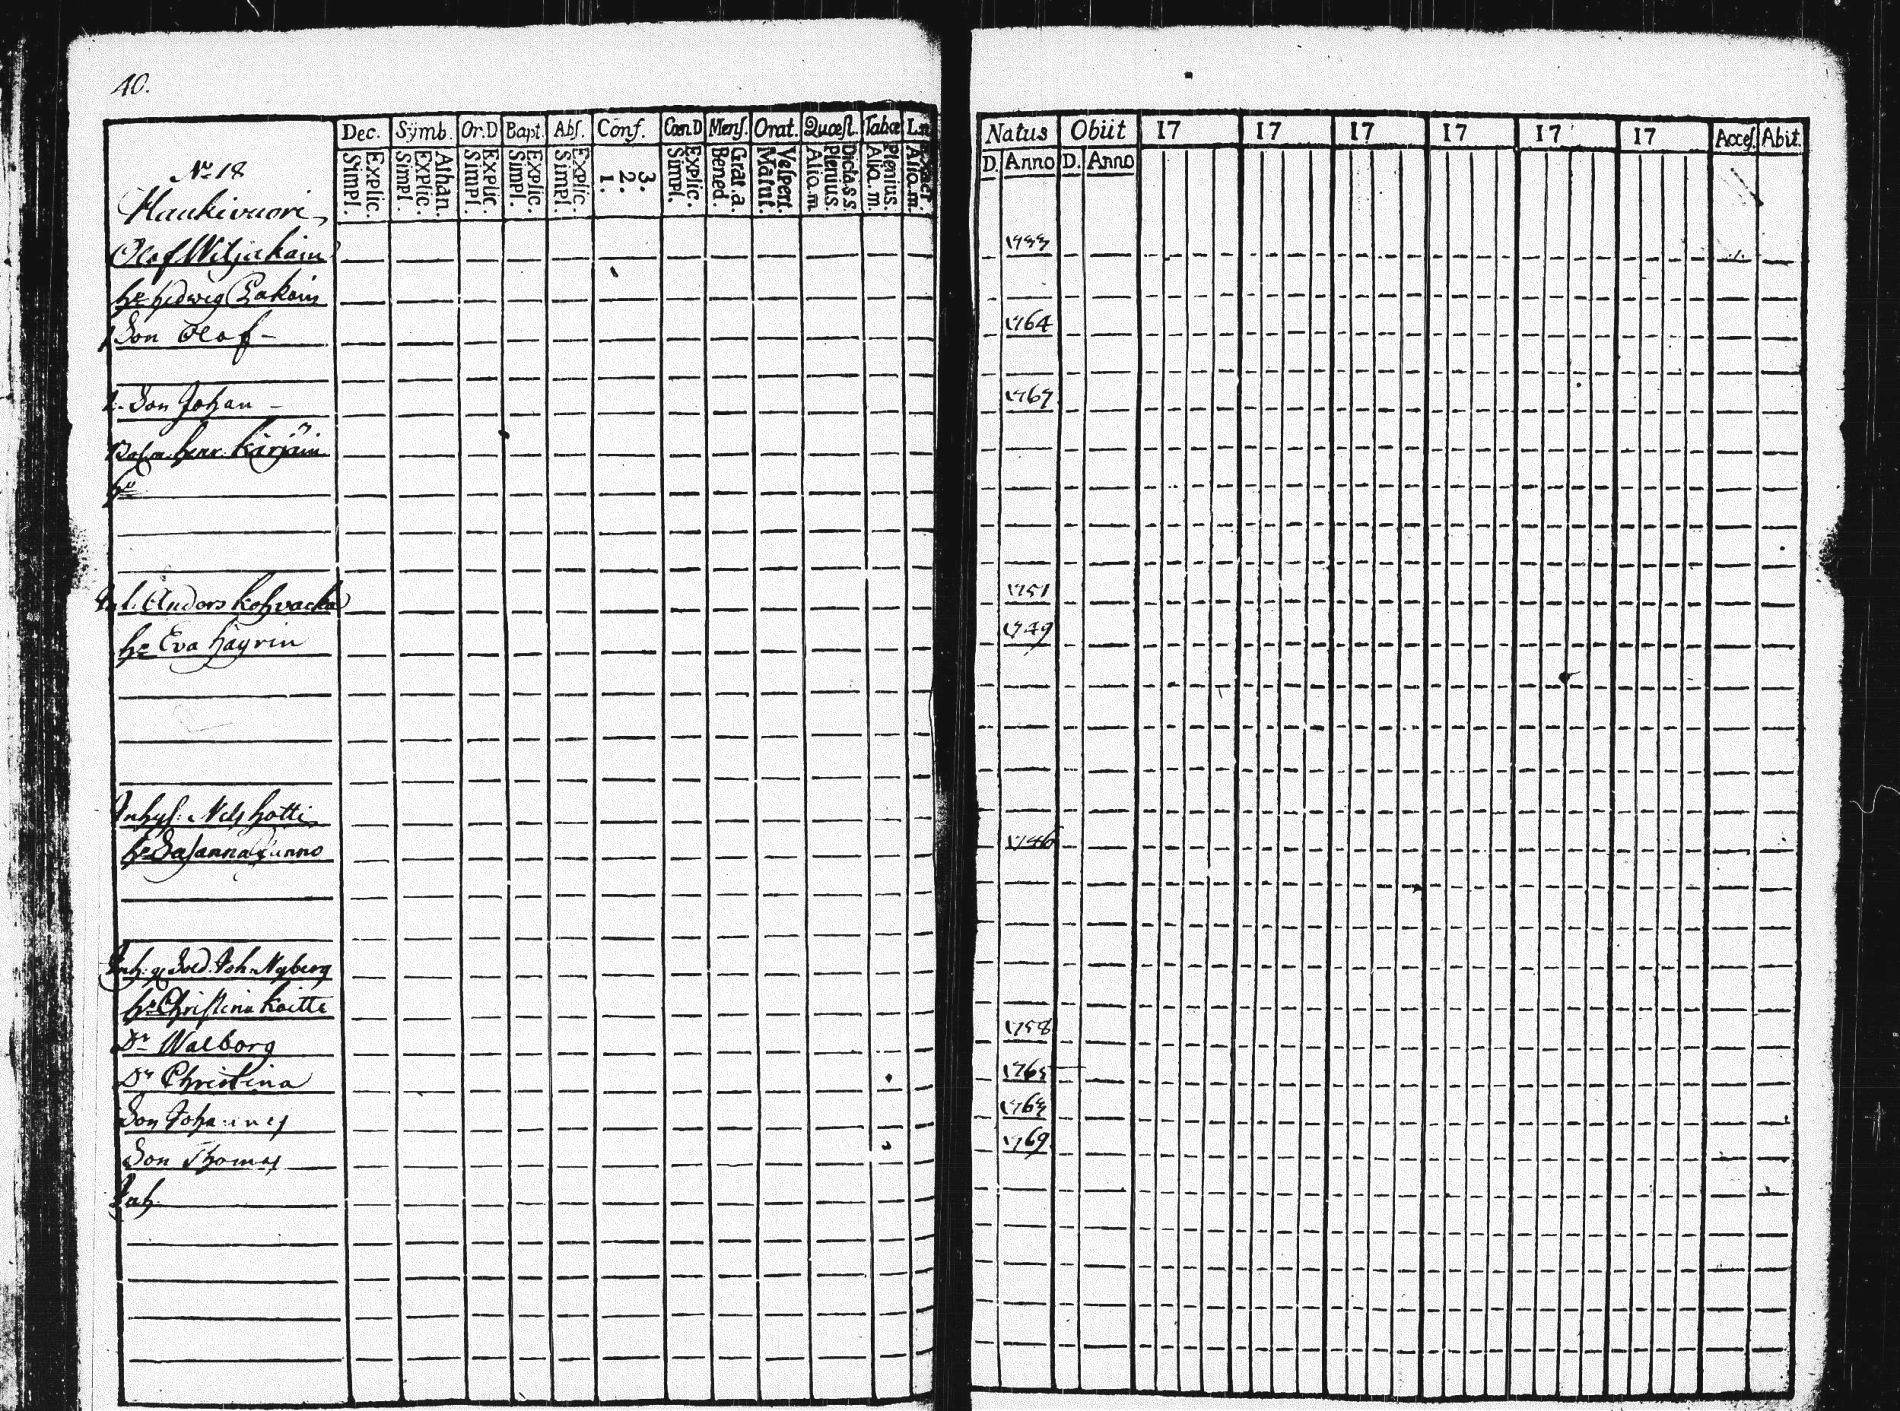 40.
Dec. Symb. Or.D Bapt. Abs. Conf. Cœn.D Mens. Orat. Quœst. Tabœ
Explic. Simpl. Athan. Explic. Simpl. Explic. Simpl. Explic. Simpl. Explic. Simpl. 3. 2. 1. Explic. Simpl. Grat. a. Bened. Vespert. Matut. Dicta s s Plenius. Alio. m. Plenius. Alio. m. Alio. m.
Natus Obiit 17 17 17 17 17 17 Acces. Abit.
D. Anno D. Anno
No 18
Haukivuori
Olof Wiljakain 1733
hu Hedwig
1 Son Olof 1764
2. Son Johan 1767
henr. Kärjäin
hu
Anders Kohvacka 1751
hu Eva Häyrin 1749
Inhys: Nils Hotti
hu Susanna 1746
Inh. Sold. Joh. Nyberg
hu Christina Koitti
Dr Walborg 1758
Dr Christina
Son Johannes 1763
Son Thomas 1769
Inh.